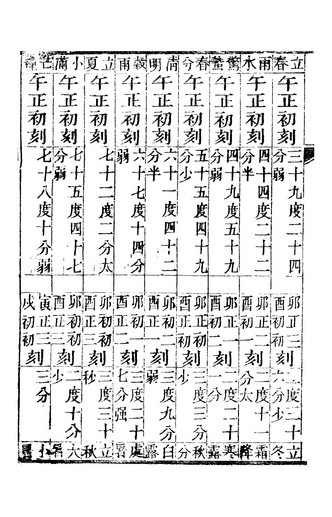 立春 午正初刻 三十九度二十四分弱 卯正二酉初一刻 二十六分少 立冬
雨水 午正初刻 四十四度二十二分半 卯正二酉初一刻 分太 霜降
驚蟄 午正初刻 四十九度五十八分弱 卯正一酉初二刻 二度二十分 寒露
春分 午正初刻 五十五度四十九分少 卯正初酉初刻 三度三分少 秋分
清明 午正初刻 六十一度四十二分半 卯初酉正初刻 三度九分弱 白露
穀雨 午正初刻 六十七度十四分弱 卯初二酉正一刻 二度十七分强 處暑
立夏 午正初刻 七十二度二分太 卯初酉正三刻 三度三十秒 立秋
小滿 午正初刻 七十五度四十七分弱 卯初初酉正三刻 二度十分少 大暑
芒種 午正初刻 七十八度十分弱 寅正三戌初初刻 三分 小暑